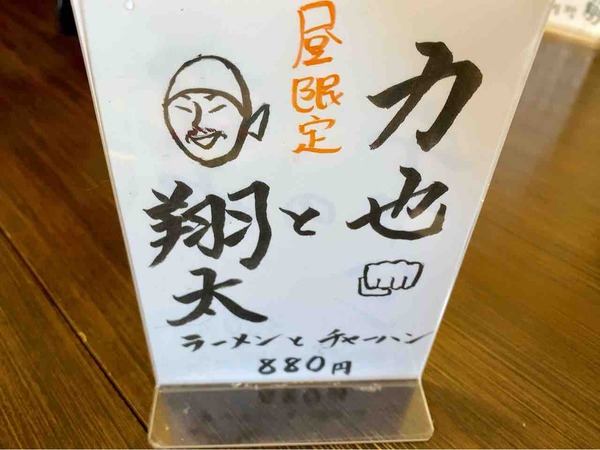 昼限定
力也
と
翔太
ラーメンと チャーハン
880円